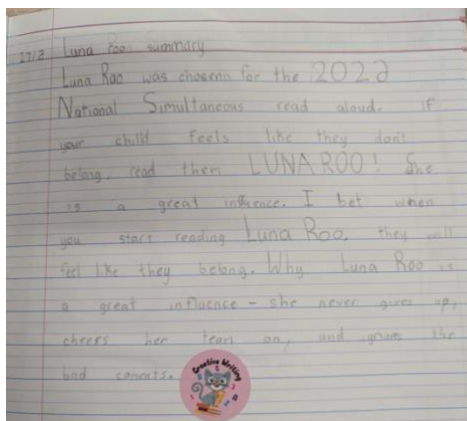 27/2 Luna Roo summary
Luna Roo was chosenn for the 2022
National Simultaneous read aloud. if
your child feels like they dont
belong, read them LUNA ROO! She
is a great influence. I bet when
you start reading Luna Roo, they will
feel like they belong. Why Luna Roo is
a great influence - she never gives up,
cheers her team on, and the
bad coments.
Creative Writing